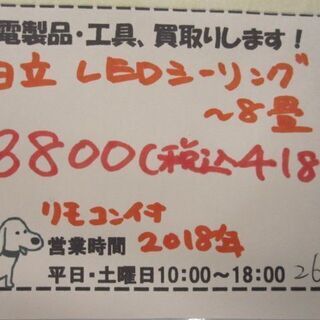 電製品・工具、買取りします！
日立 LEDシーリング
～8畳
3800(税込418
リモコン付
営業時間 2018年
平日・土曜日10:00～18:00 26